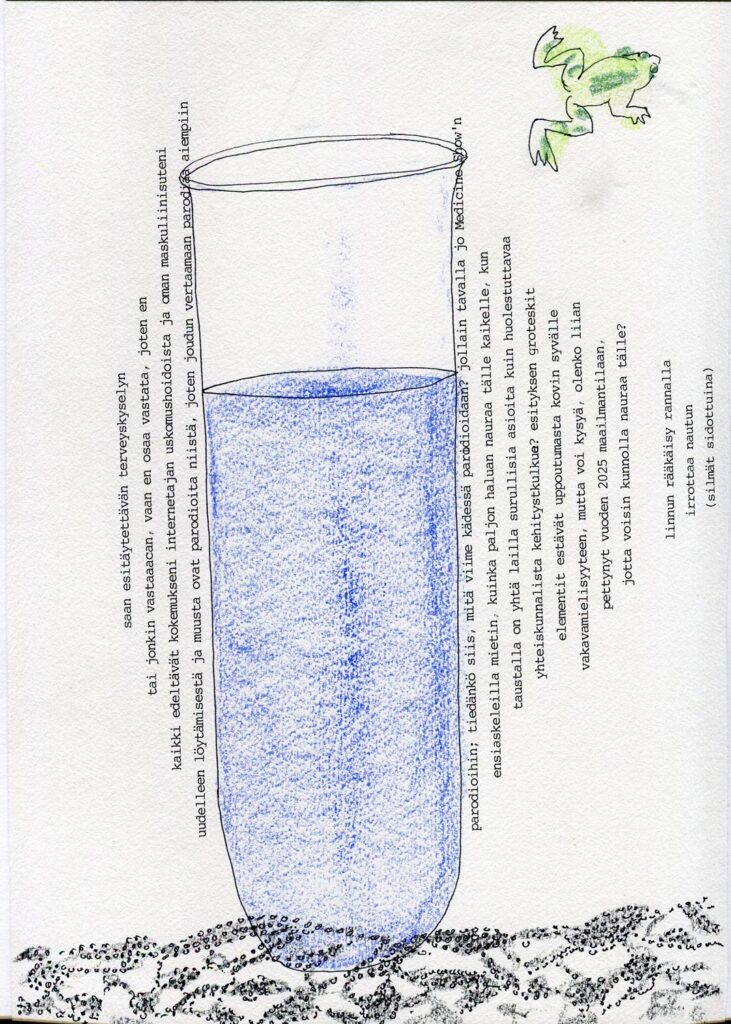 saan esitäytettävän terveyskyselyn
tai jonkin vastaaacan, vaan en osaa vastata, joten en
kaikki edeltävät kokemukseni internetajan uskomushoidoista ja oman maskuliinisuteni
uudelleen löytämisestä ja muusta ovat parodioita niistä, joten joudun vertaamaan parodiaa aiempiin
parodioihin; tiedänkö siis, mitä viime kädessä parodioidaan? jollain tavalla jo Medicine Show'n
ensiaskeleilla mietin, kuinka paljon haluan nauraa tälle kaikelle, kun
taustalla on yhtä lailla surullisia asioita kuin huolestuttavaa
yhteiskunnalista kehitystkulkua? esityksen groteskit
elementit estävät uppoutumasta kovin syvälle
vakavamielisyyteen, mutta voi kysyä, olenko liian
pettynyt vuoden 2025 maailmantilaan,
jotta voisin kunnolla nauraa tälle?
linnun rääkäisy rannalla
irrottaa nautun
(silmät sidottuina)